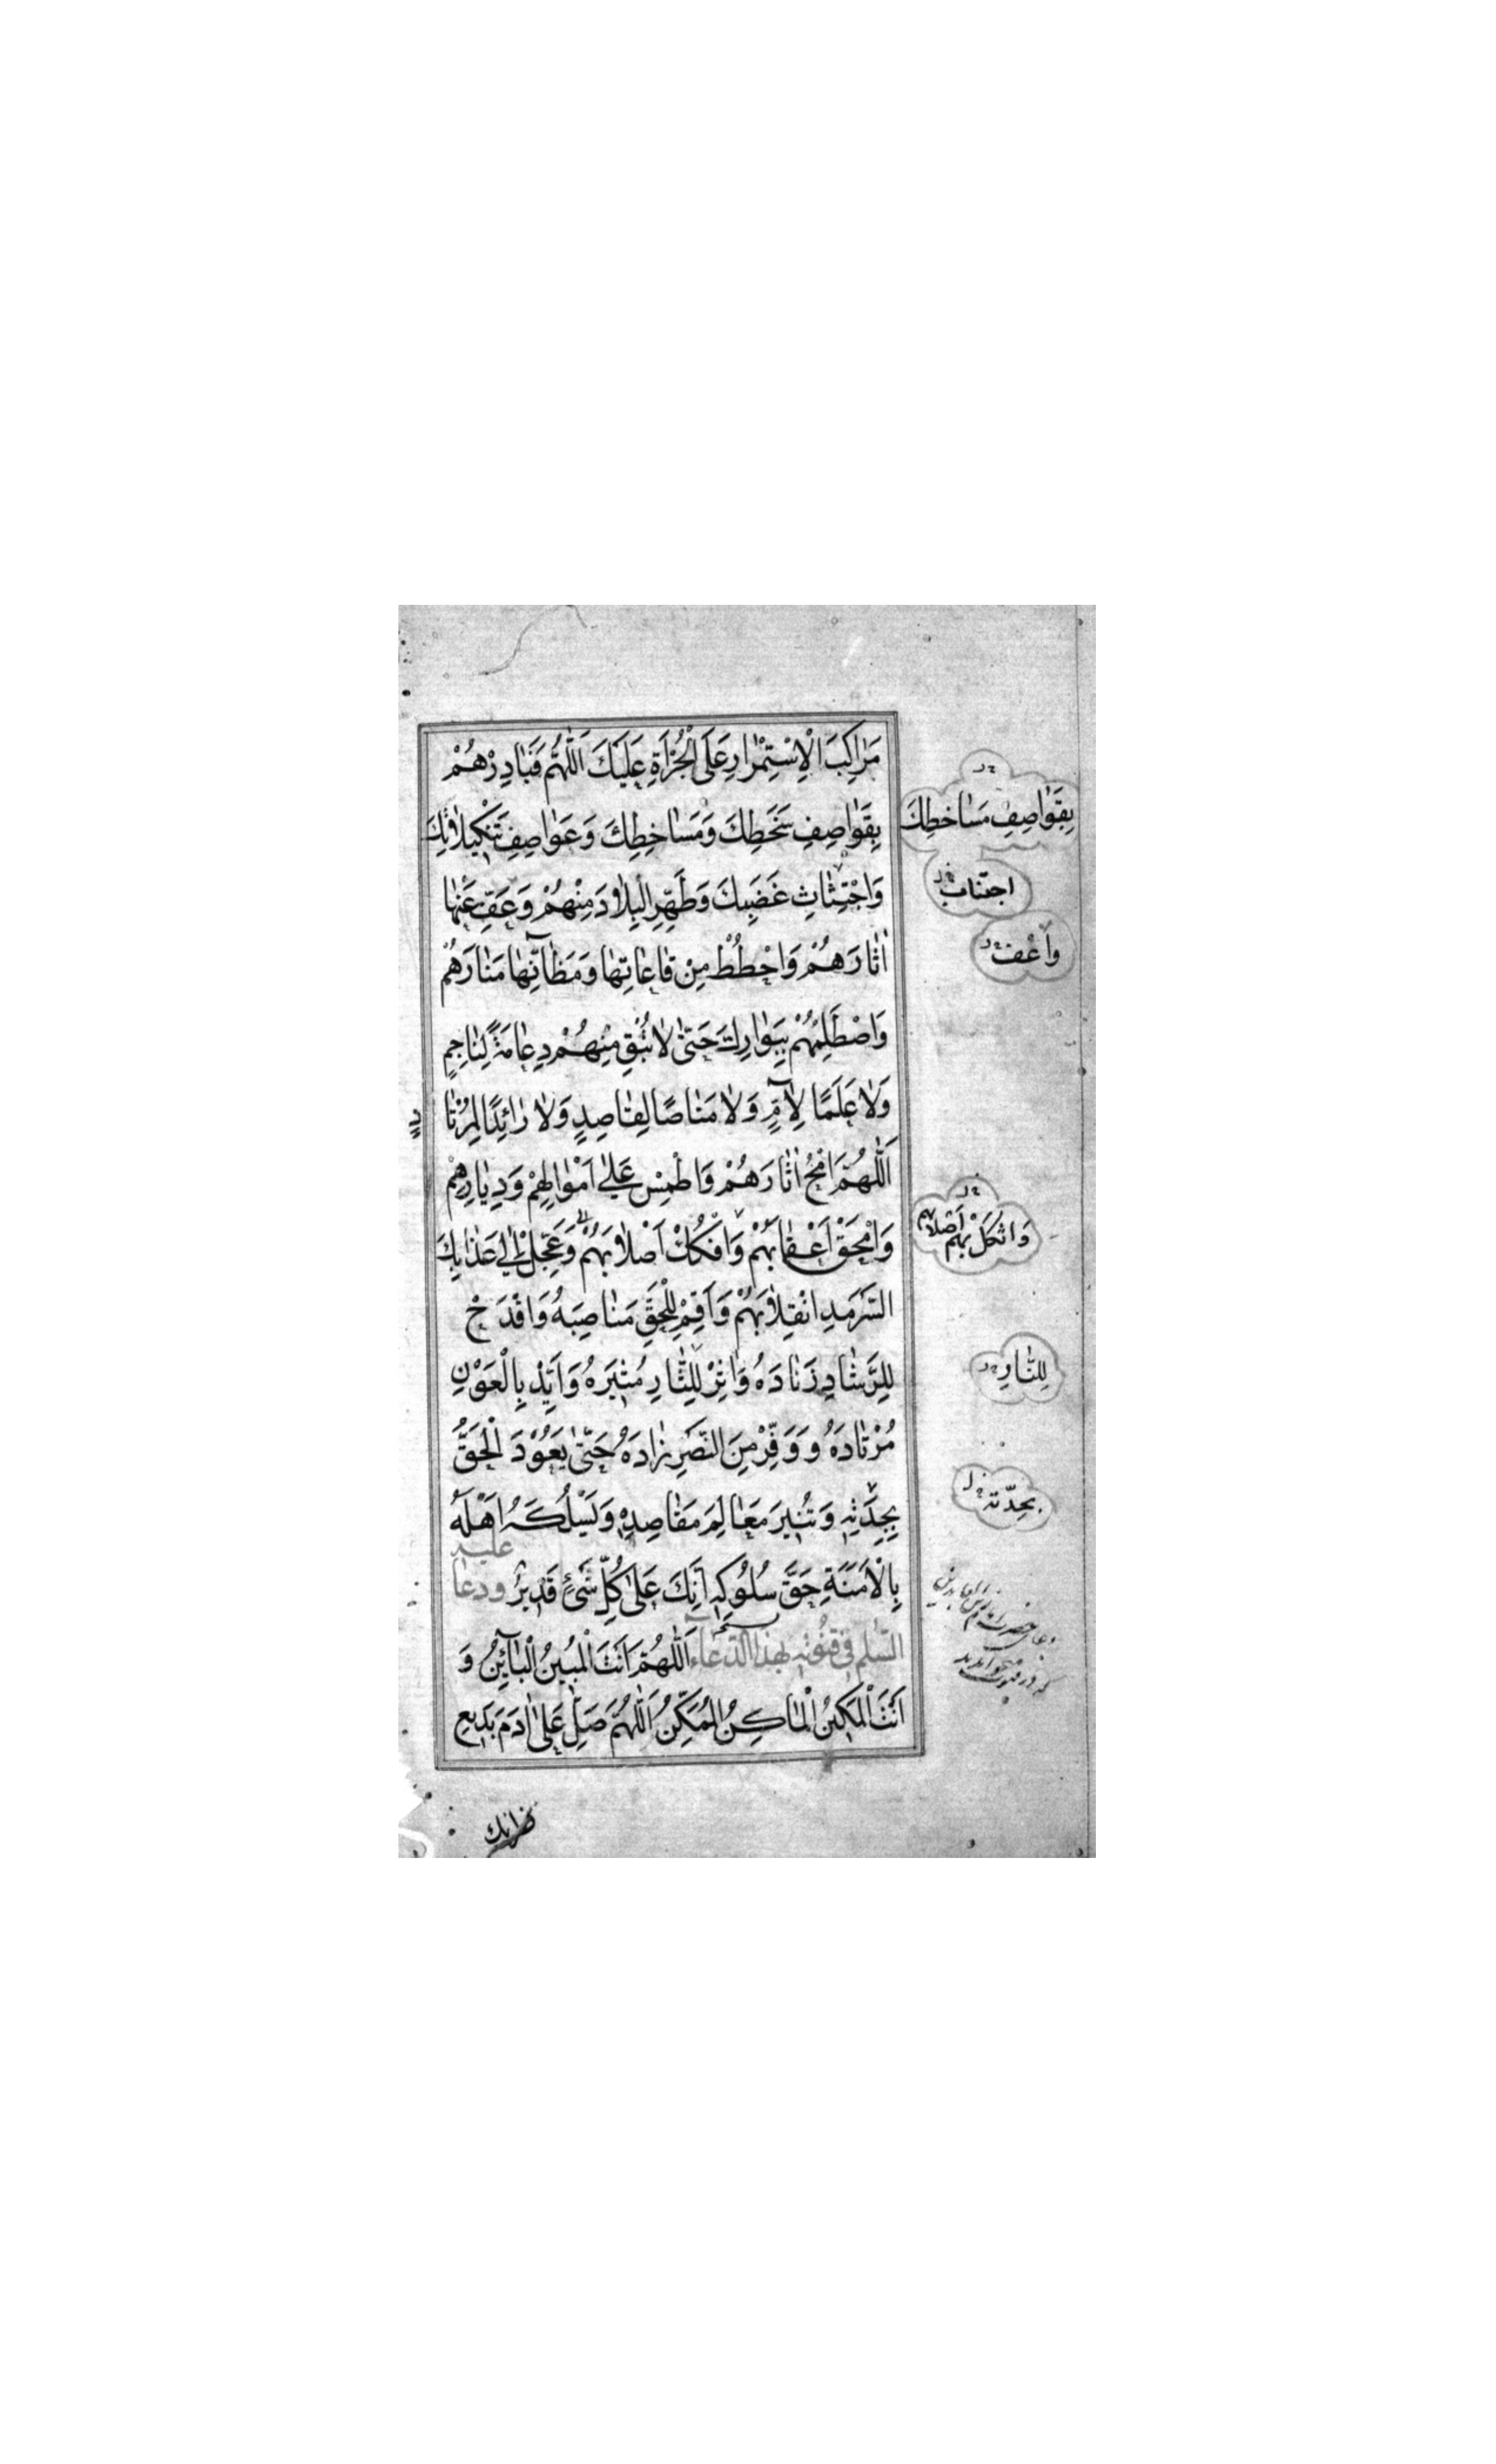 مَرٰاكِبَ الْاِسْتِمْرٰارِ عَلَى الْجُرْاَةِ عَلَيْكَ اَللّٰهُمَّ فَبٰادِرْهُمْ
بِقَوٰاصِفِ سَخَطِكَ وَمَسٰاخِطِكَ وَعَوٰاصِفِ تَنْكيلاٰتِكَ
بِقَوٰاصِفِ مَسٰاخطِكَ
وَاجْتِثٰاثِ غَضَبِكَ وَطَهِّرِ الْبِلاٰدَ مِنْهُمْ وَعَفِّ عَنْهٰا
اجتناب
اٰثٰارَهُمْ وَاحْطُطْ مِنْ قٰاعٰاتِهٰا وَمَظٰآنِّهٰا مَنٰارَهُمْ
وَاَعْف
وَاصْطَلِمْهُمْ بِبَوٰارِكَ حَتّىٰ لاٰ تُبْقِ مِنْهُمْ دِعٰامَةً لِنٰاجِمٍ
وَلاٰ عَلَمًا لِاٰمٍّ وَلاٰ مَنٰاصًا لِقٰاصِدٍ وَلاٰ رٰائِدًا لِمُرْتٰا
دٍ
اَللّٰهُمَّ امْحُ اٰثٰارَهُمْ وَاطْمِسْ عَلىٰ اَمْوٰالِهِمْ وَدِيٰارِهِمْ
وَامْحَقْ اَعْقٰابَهُمْ وَافْكُكْ اَصْلاٰبَهُمْ وَعَجِّلْ اِلىٰ عَذٰابِكَ
وَاثكَلْ بهم اَصْلابهم
السَّرْمَدِ انْقِلاٰبَهُمْ وَاَقِمْ لِلْحَقِّ مَنٰاصِبَهُ وَاقْدَحْ
لِلرَّشٰادِ زَنٰادَهُ وَاَثِرْ لِلثّٰارِ مُثيرَهُ وَاَيِّدْ بِالْعَوْنِ
لِلثّٰارِ
مُرْتٰادَهُ وَوَفِّرْ مِنَ النَّصْرِ زٰادَهُ حَتّىٰ يَعُوْدَ الْحَقُّ
بِجِدَّتِهٖ وَتُنيرَ مَعٰالِمَ مَقٰاصِدِهٖ وَيَسْلُكَهُ اَهْلُهُ
بحِدّته
بِالْاَمَنَةِ حَقَّ سُلُوكِهٖ اِنَّكَ عَلىٰ كُلِّ شَىْءٍ قَديرٌ ودعا عليه
السّلم فى قنُوتِه بهذا الدّعآء اَللّٰهُمَّ اَنْتَ الْمُبينُ الْبٰآئِنُ وَ
اَنْتَ الْمَكينُ الْمٰاكِنُ الْمُمَكِّنُ اَللّٰهُمَّ صَلِّ عَلىٰ اٰدَمَ بَديعِ
فطرتك